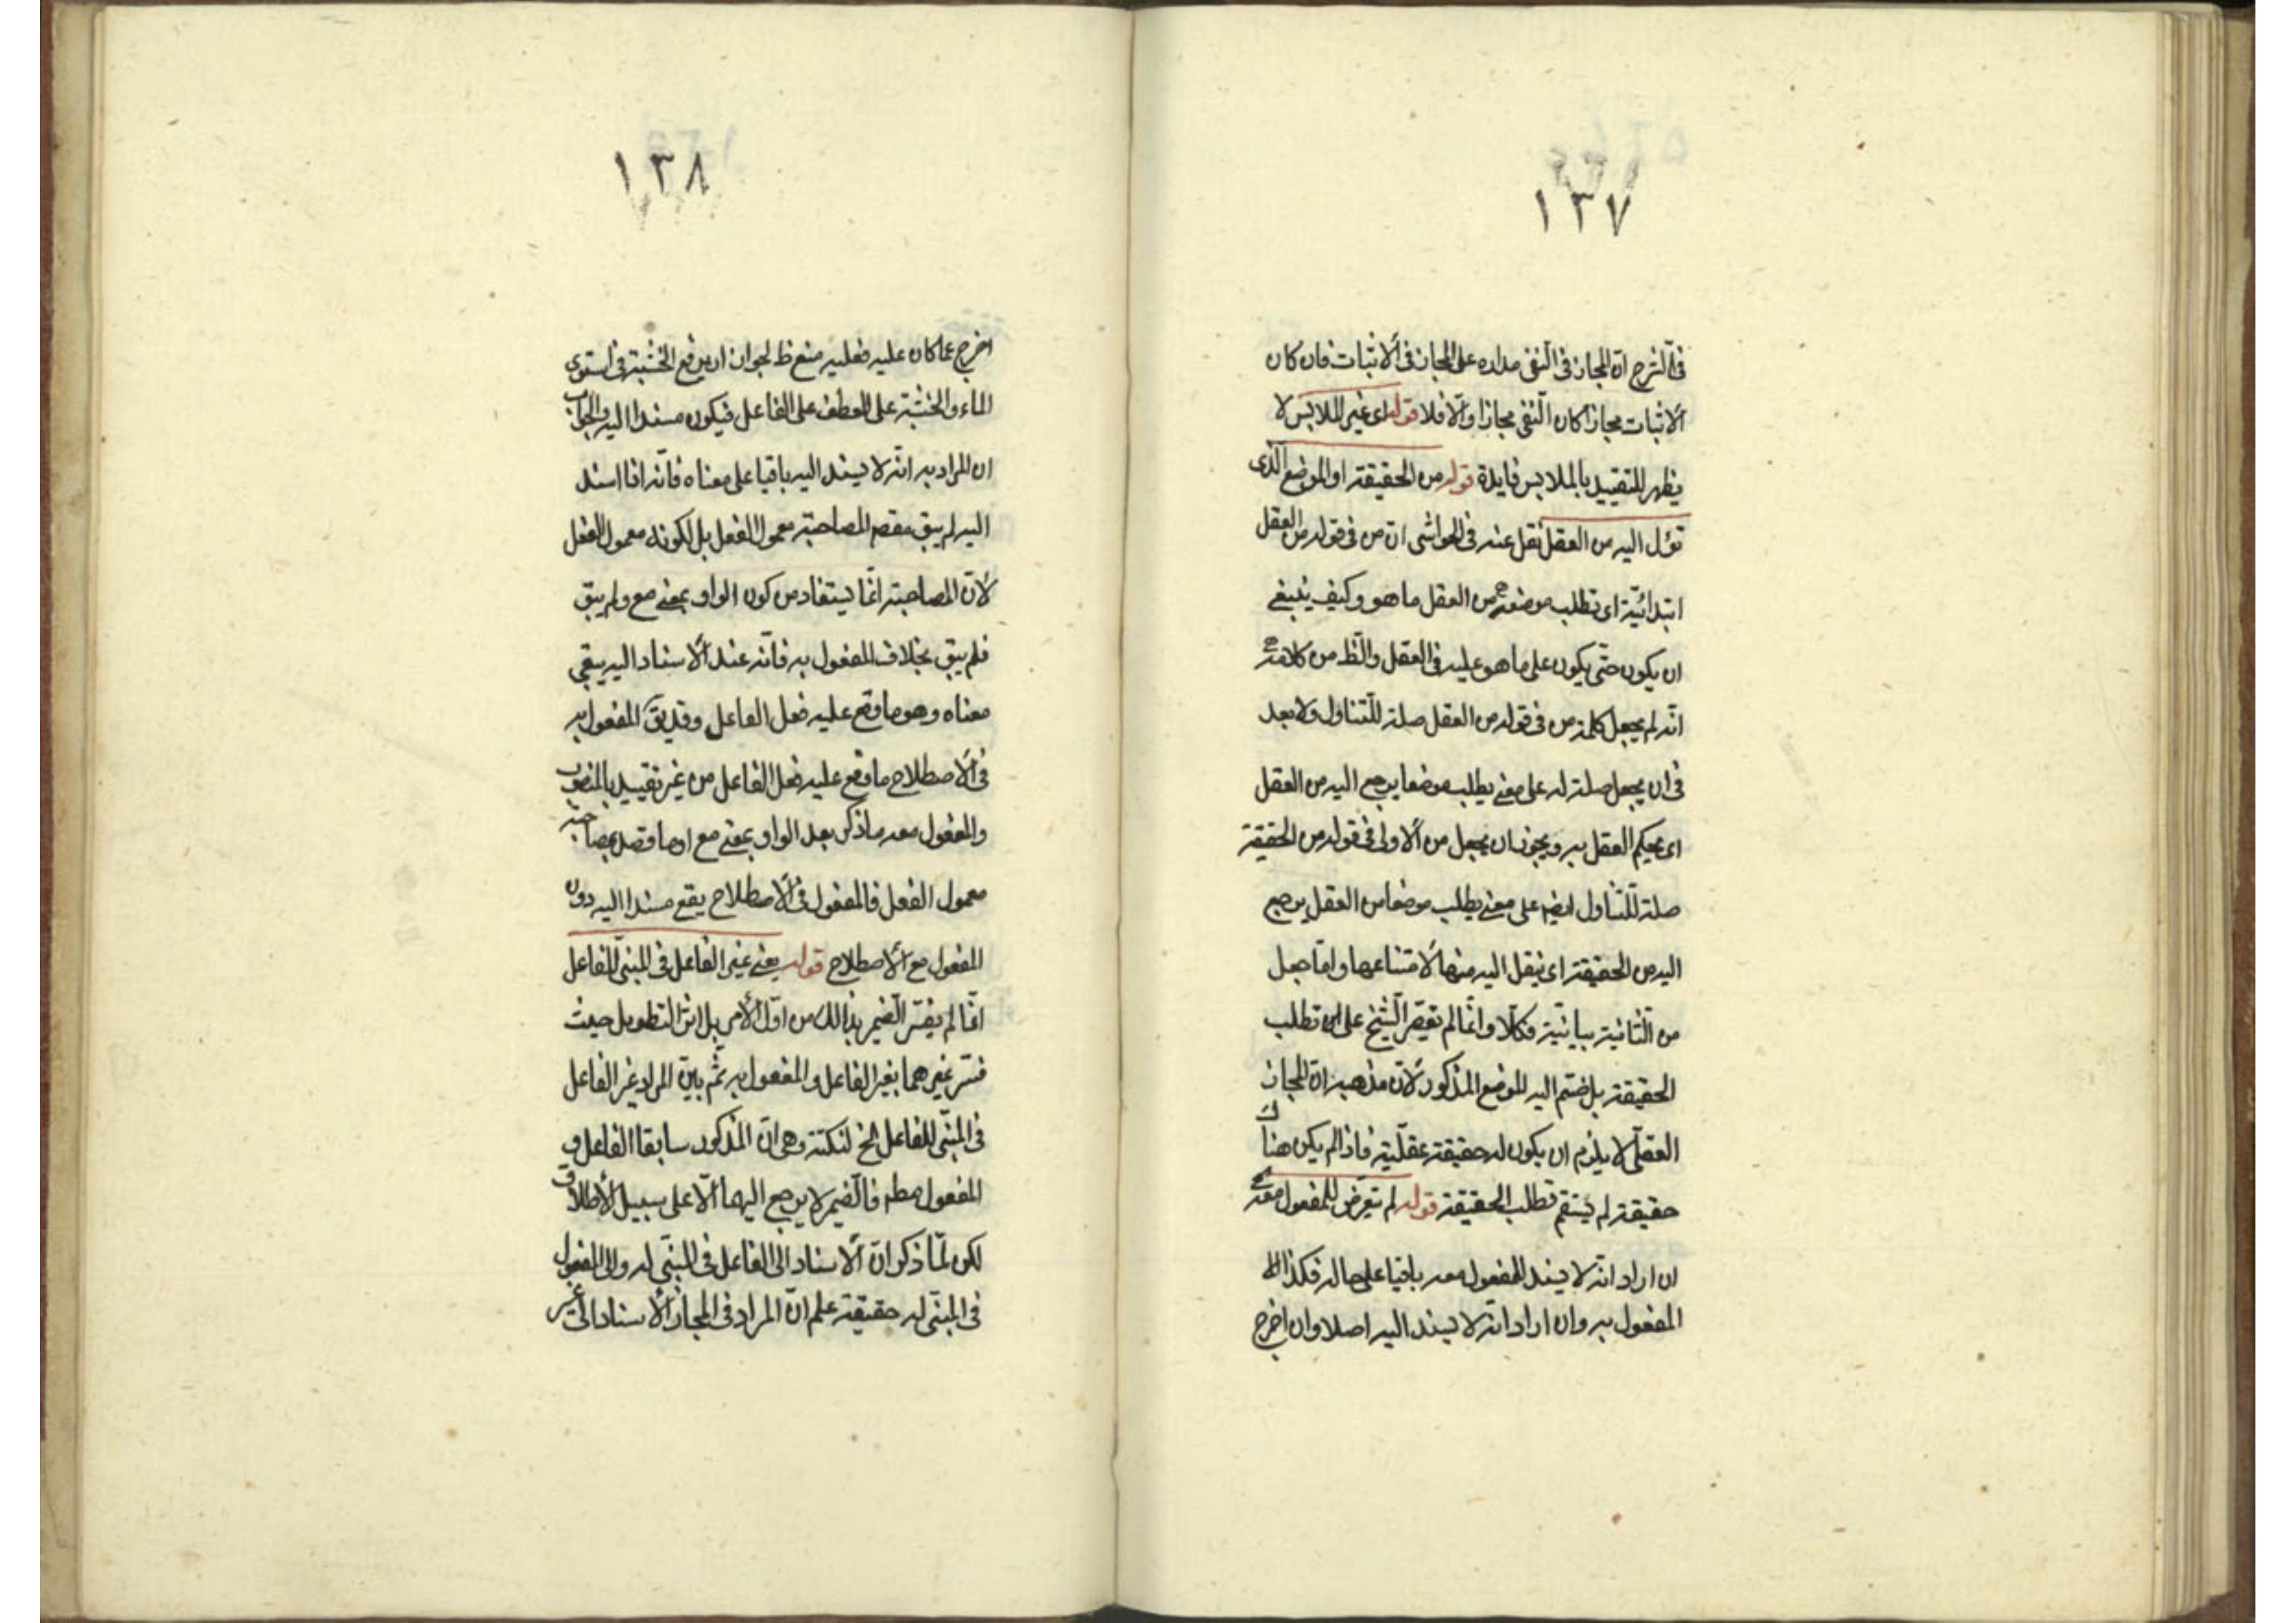 ١٣٧
في الشرح ان المجاز في النفي مداره على المجاز في الاثبات فان كان
الاثبات مجازا كان النفي مجازا والا فلا قوله اى غير الملابس لا
يظهر للتقييد بالملابس فايدة قوله من الحقيقة او الموضع الذى
تؤل اليه من العقل نقل عنه في الحواشى ان من في قوله من العقل
ابتدائيّة اى تطلب موضعه من العقل ما هو وكيف ينبغى
ان يكون حتّى يكون على ما هو عليه في العقل والظ من كلامه
انّه لم يجعل كلمة من في قوله من العقل صلة للتناول ولا بعد
في ان يجعل صلة له على معنى يطلب موضعا يرجع اليه من العقل
اى يحكم العقل به ويجوز ان يجعل من الاولى في قوله من الحقيقة
صلة للتناول ايضا على معنى يطلب موضعا من العقل يرجع
اليه من الحقيقة اى ينقل اليه منها لامتناعها وامّا جعل
من الثانية بيانيّة فكلّا وانّما لم يقتصر الشيخ على ان تطلب
الحقيقة بل ضم اليه الموضع المذكور لانّ مذهبه انّ المجاز
العقلىّ لا يلزم ان يكون له حقيقة عقليّة فاذا لم يكن هناك
حقيقة لم يستقم تطلب الحقيقة قوله لم يتعرّض للمفعول معه
ان اراد انّه لا يسند المفعول معه باقيا على حاله فكذا
المفعول به وان اراد انّه لا يسند اليه اصلا وان اخرج
١٣٨
اخرج عما كان عليه فعليه منع ظ لجواز ان يرفع الخشبة في استوى
الماء والخشبة على العطف على الفاعل فيكون مسندا اليه والجواب
ان المراد به انّه لا يسند اليه باقيا على معناه فانّه اذا اسند
اليه لم يبق بقصد المصاحبة معمول الفعل بل لكونه معمول الفعل
لانّ المصاحبة انّما يستفاد من كون الواو بمعنى مع ولم يبق
فلم يبق بخلاف المفعول به فانّه عند الاسناد اليه يبقى
معناه وهو ما وقع عليه فعل الفاعل وقد يق المفعول به
في الاصطلاح ما وقع عليه فعل الفاعل من غير تقييد بالمنصوب
والمفعول معه ما ذكر بعد الواو بمعنى مع او ما قصد بمصاحبته
معمول الفعل فالمفعول في الاصطلاح يقع مسندا اليه دون
المفعول مع الاصطلاح قوله يعنى غير الفاعل في المبنىّ للفاعل
انّما لم يفسّر الضمير بذالك من اوّل الامر بل اثر التطويل حيث
فسّر غيرهما بغير الفاعل والمفعول به ثمّ بيّن المراد غير الفاعل
في المبنىّ للفاعل الخ لنكتة وهى انّ المذكور سابقا الفاعل و
المفعول مطر فالضمير لا يرجع اليهما الّا على سبيل الاطلاق
لكن لمّا ذكر انّ الاسناد الى الفاعل في المبنّى له والى المفعول
في المبنّى له حقيقة علم انّ المراد في المجاز الاسناد الى غير